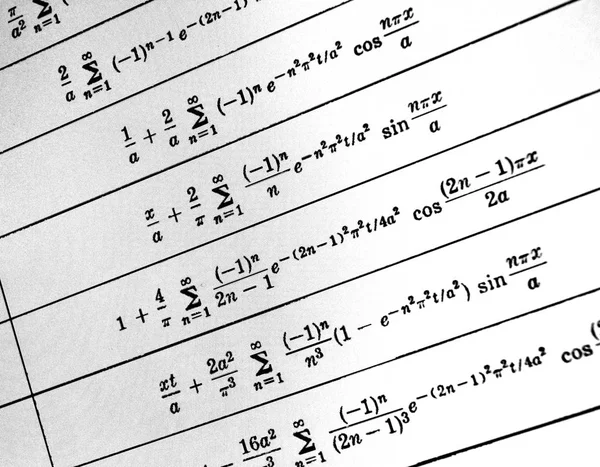 π/a² ∑ n=1
2/a ∑ n=1 ∞ (−1)ⁿ⁻¹ e^−(2n−1)
1/a + 2/a ∑ n=1 ∞ (−1)ⁿ e^−n²π²t/a² cos nπx/a
x/a + 2/π ∑ n=1 ∞ (−1)ⁿ/n e^−n²π²t/a² sin nπx/a
1 + 4/π ∑ n=1 ∞ (−1)ⁿ/(2n − 1) e^−(2n−1)²π²t/4a² cos (2n − 1)πx/2a
xt/a + 2a²/π³ ∑ n=1 ∞ (−1)ⁿ/n³ (1 − e^−n²π²t/a²) sin nπx/a
16a² ∑ n=1 ∞ (−1)ⁿ/(2n − 1)³ e^−(2n−1)²π²t/4a² cos